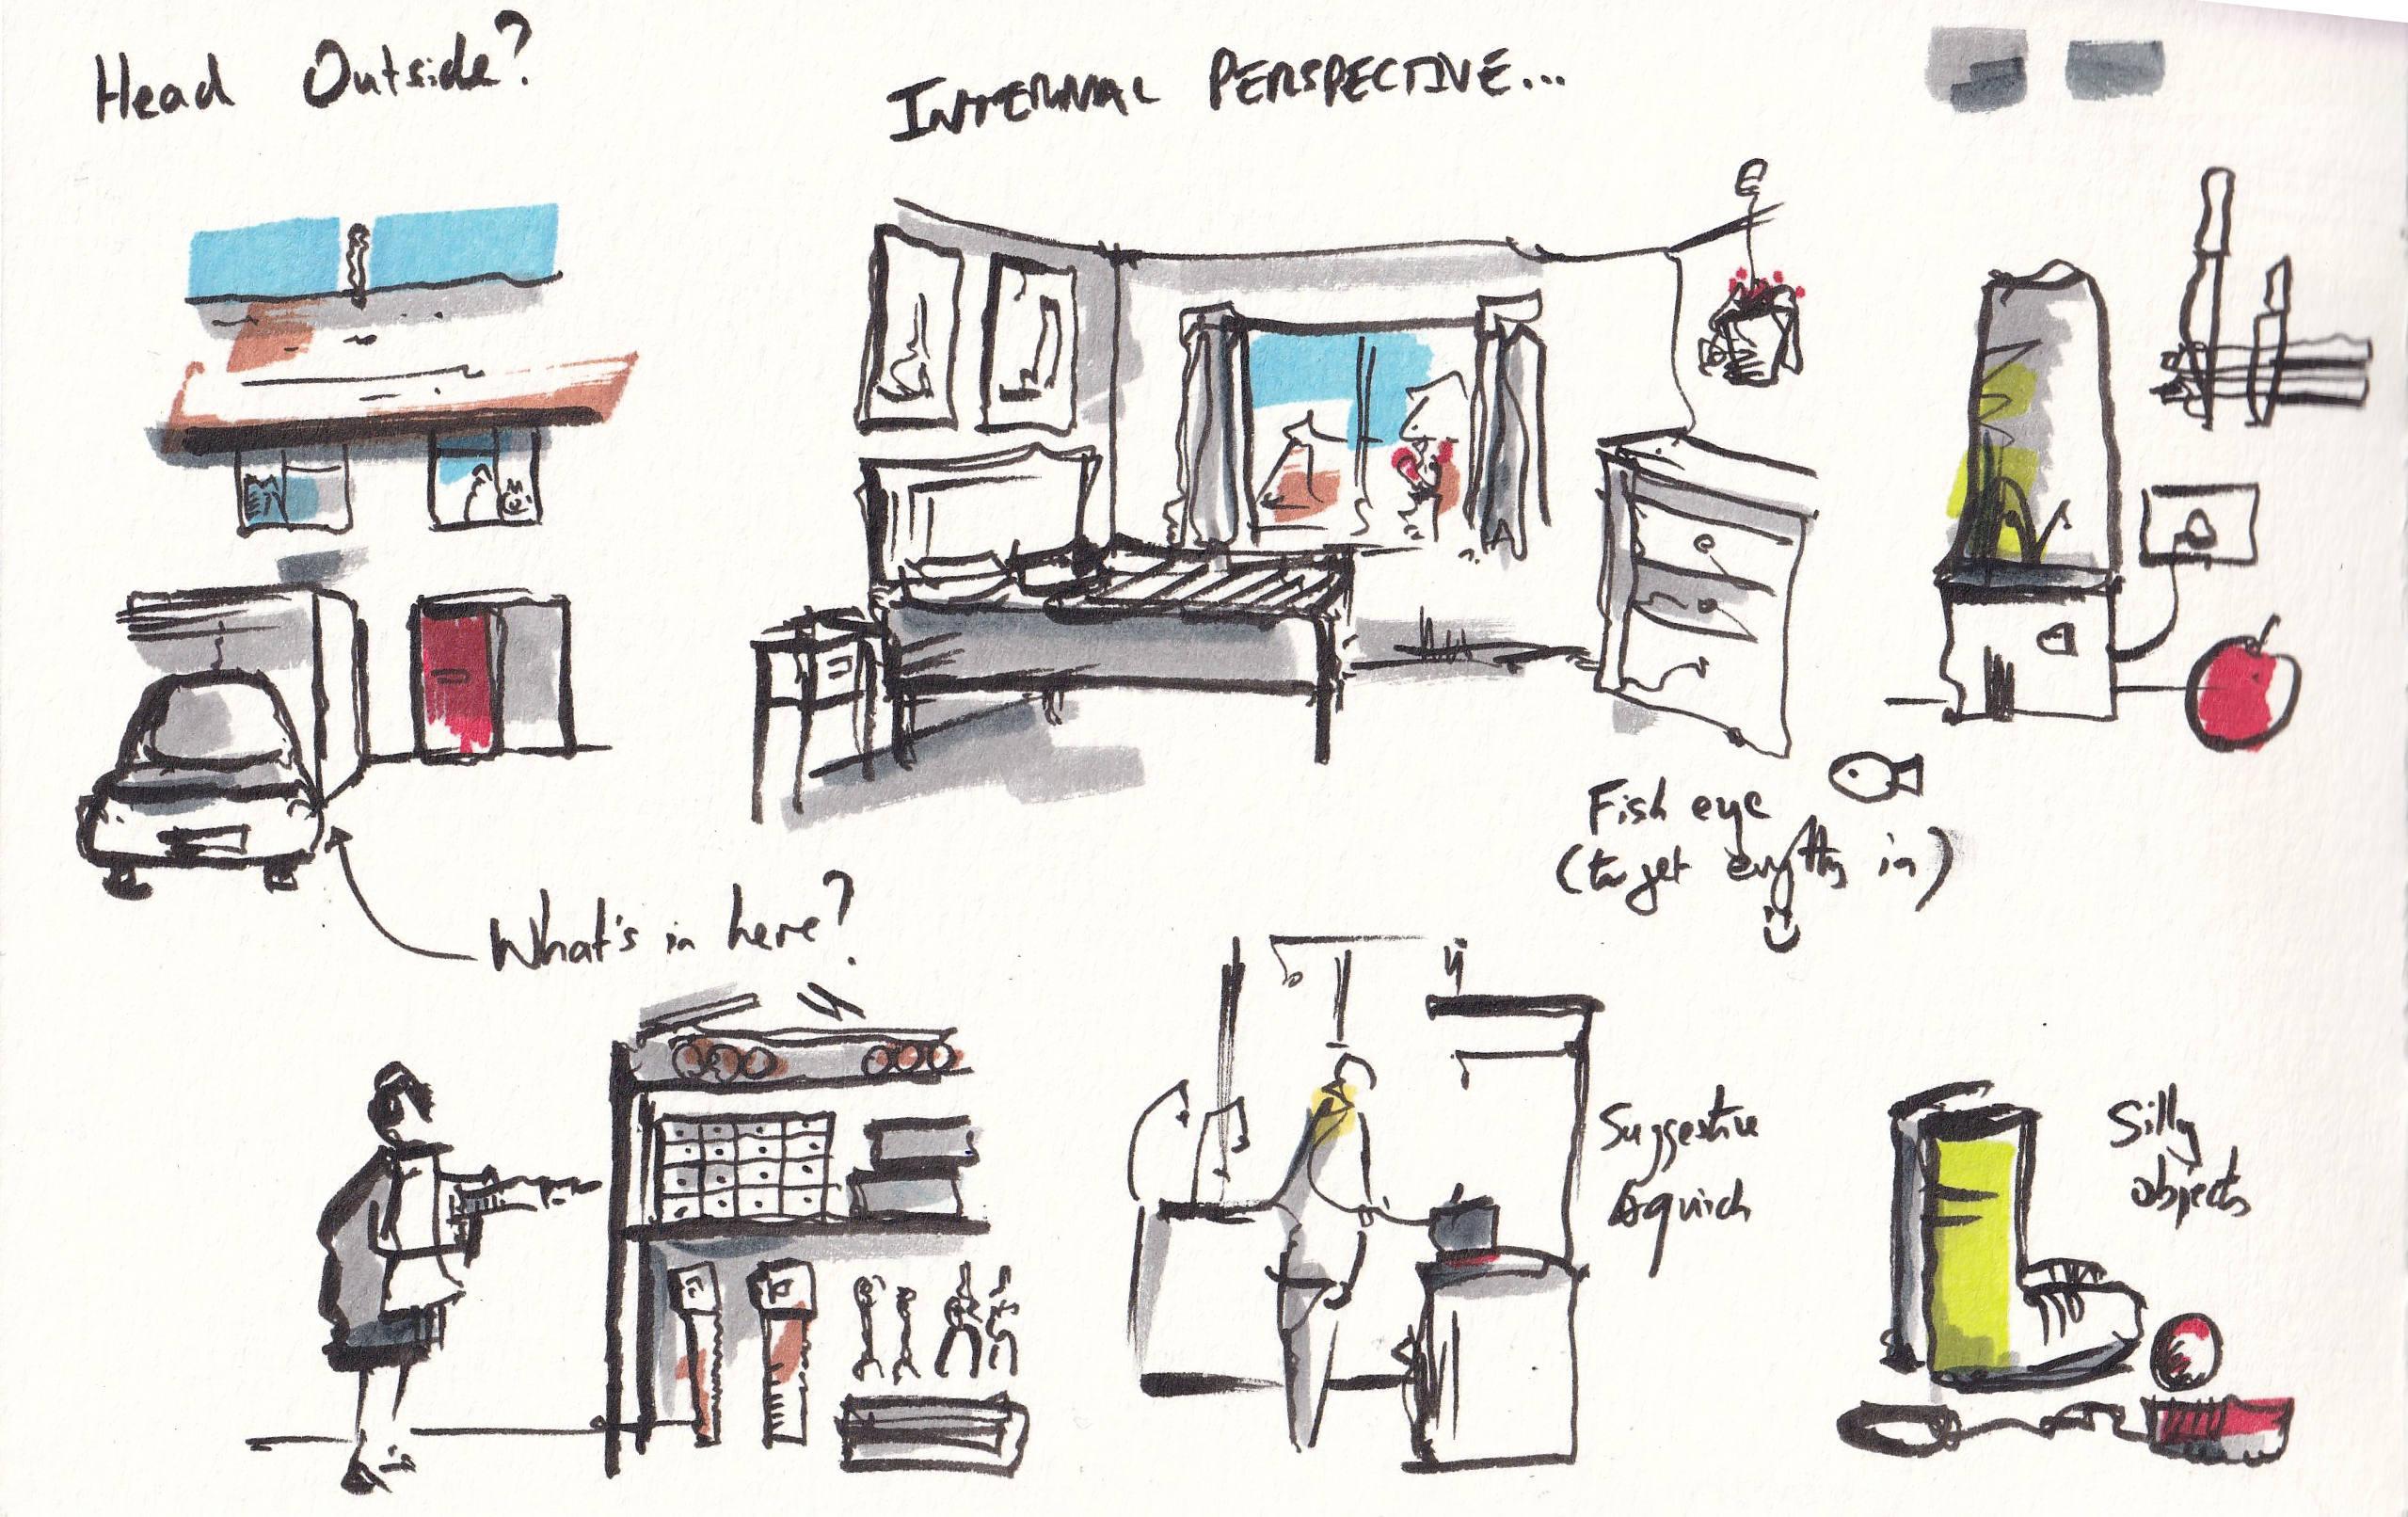 Head Outside?
INTERNAL PERSPECTIVE...
Fish eye
(to get in)
What's in here?
Suggestive
& quick
Silly
objects